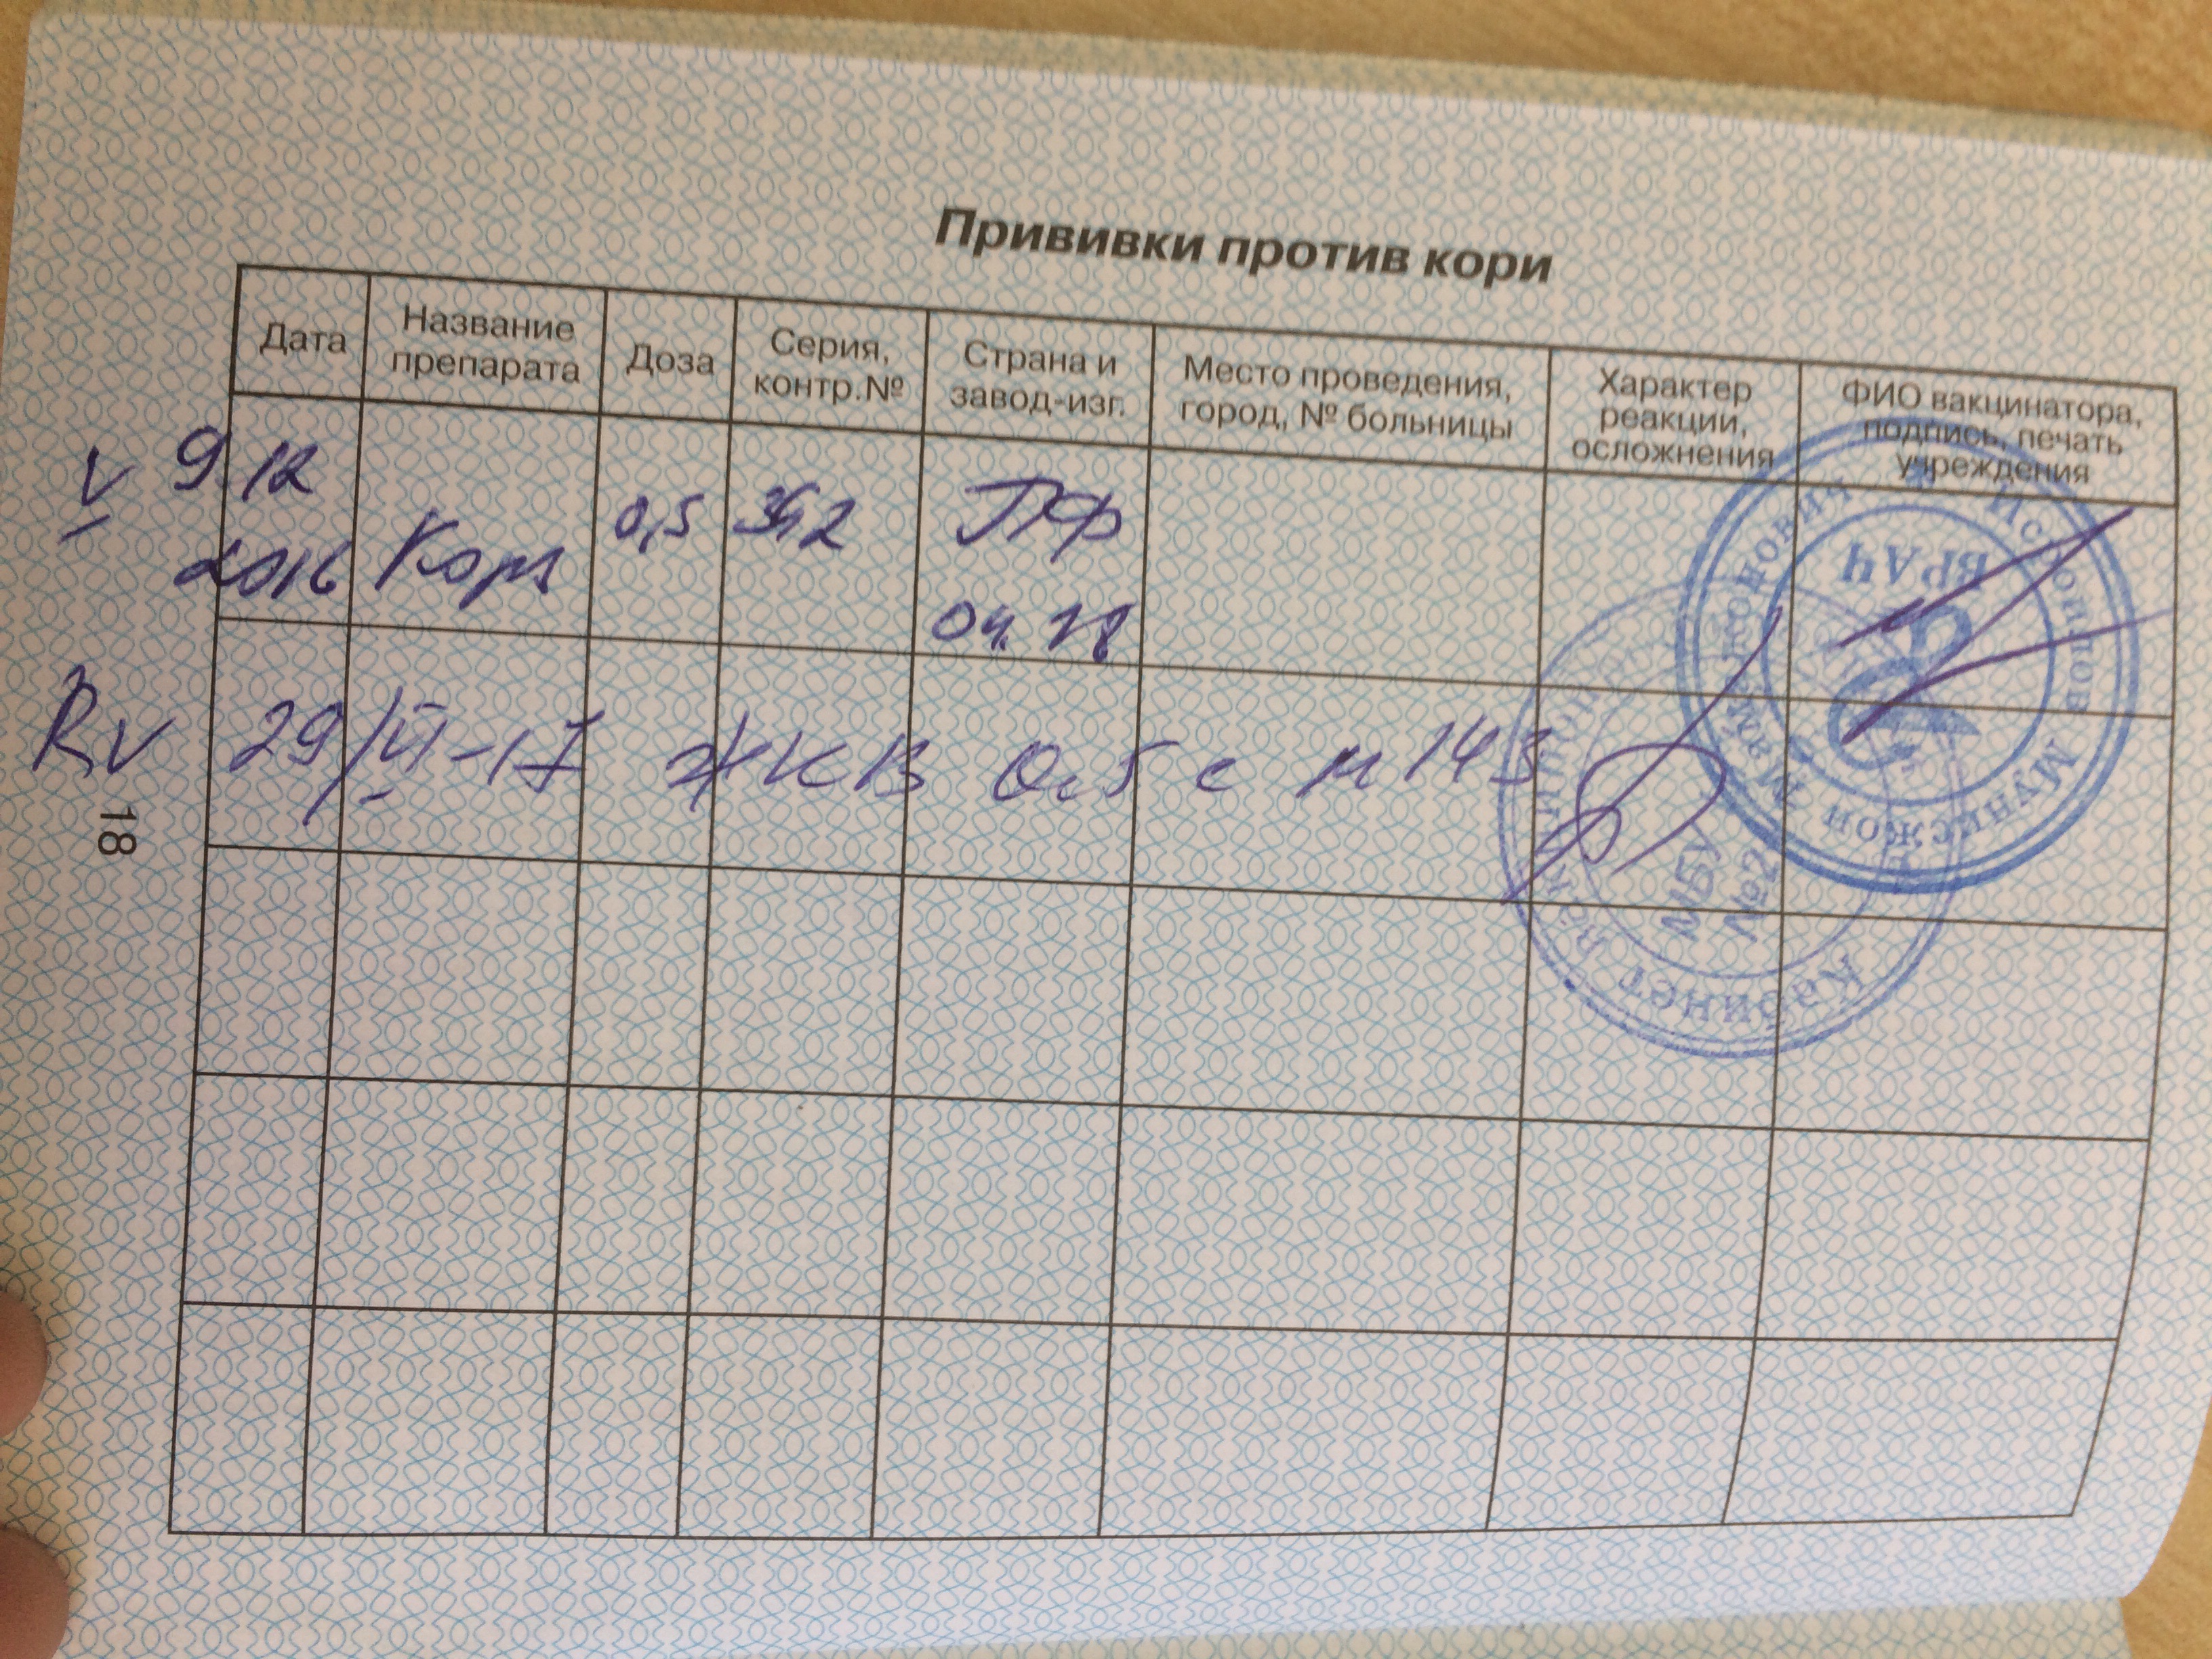 Прививки против кори
Дата Название препарата Доза Серия, контр.№ Страна и завод-изг. Место проведения, город, № больницы Характер реакции, осложнения ФИО вакцинатора, подпись, печать учреждения
V 9.12 2016 Корь 0,5 РФ 04.18
RV 29/VI-17 ЖКВ 0.5 с м 143
ВРАЧ
Кабинет
МБУ
№2
18